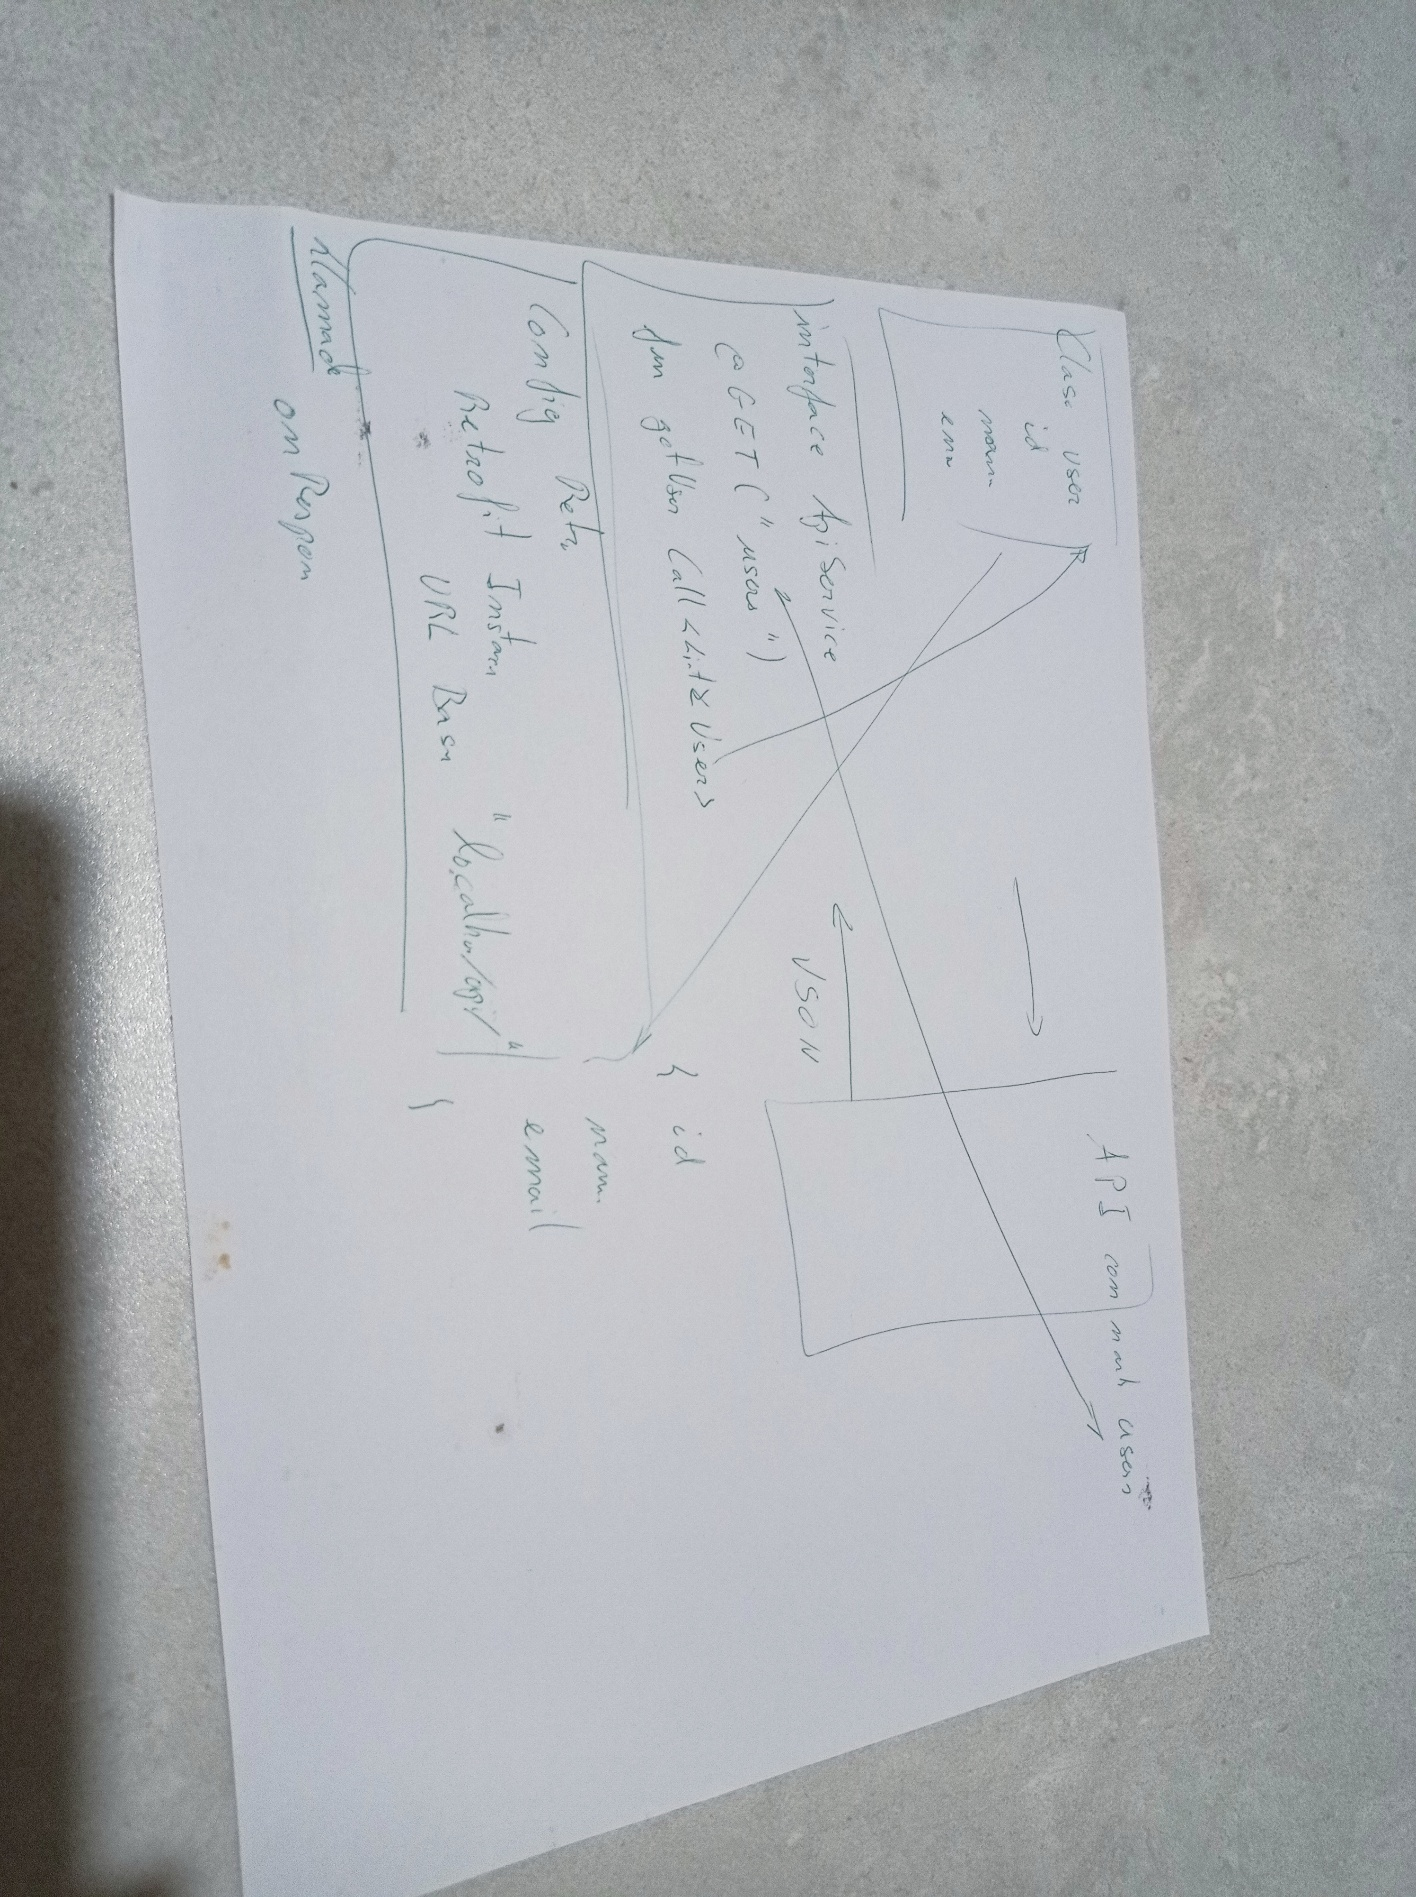 Clase User
id
nam
ema
interface ApiService
@GET("users")
fun getUser Call<List<Users>
Config Retr
Retrofit Instan
URL Base "localho/api/"
llamada
onRespon
API com users
JSON
{ id
nam
email
}